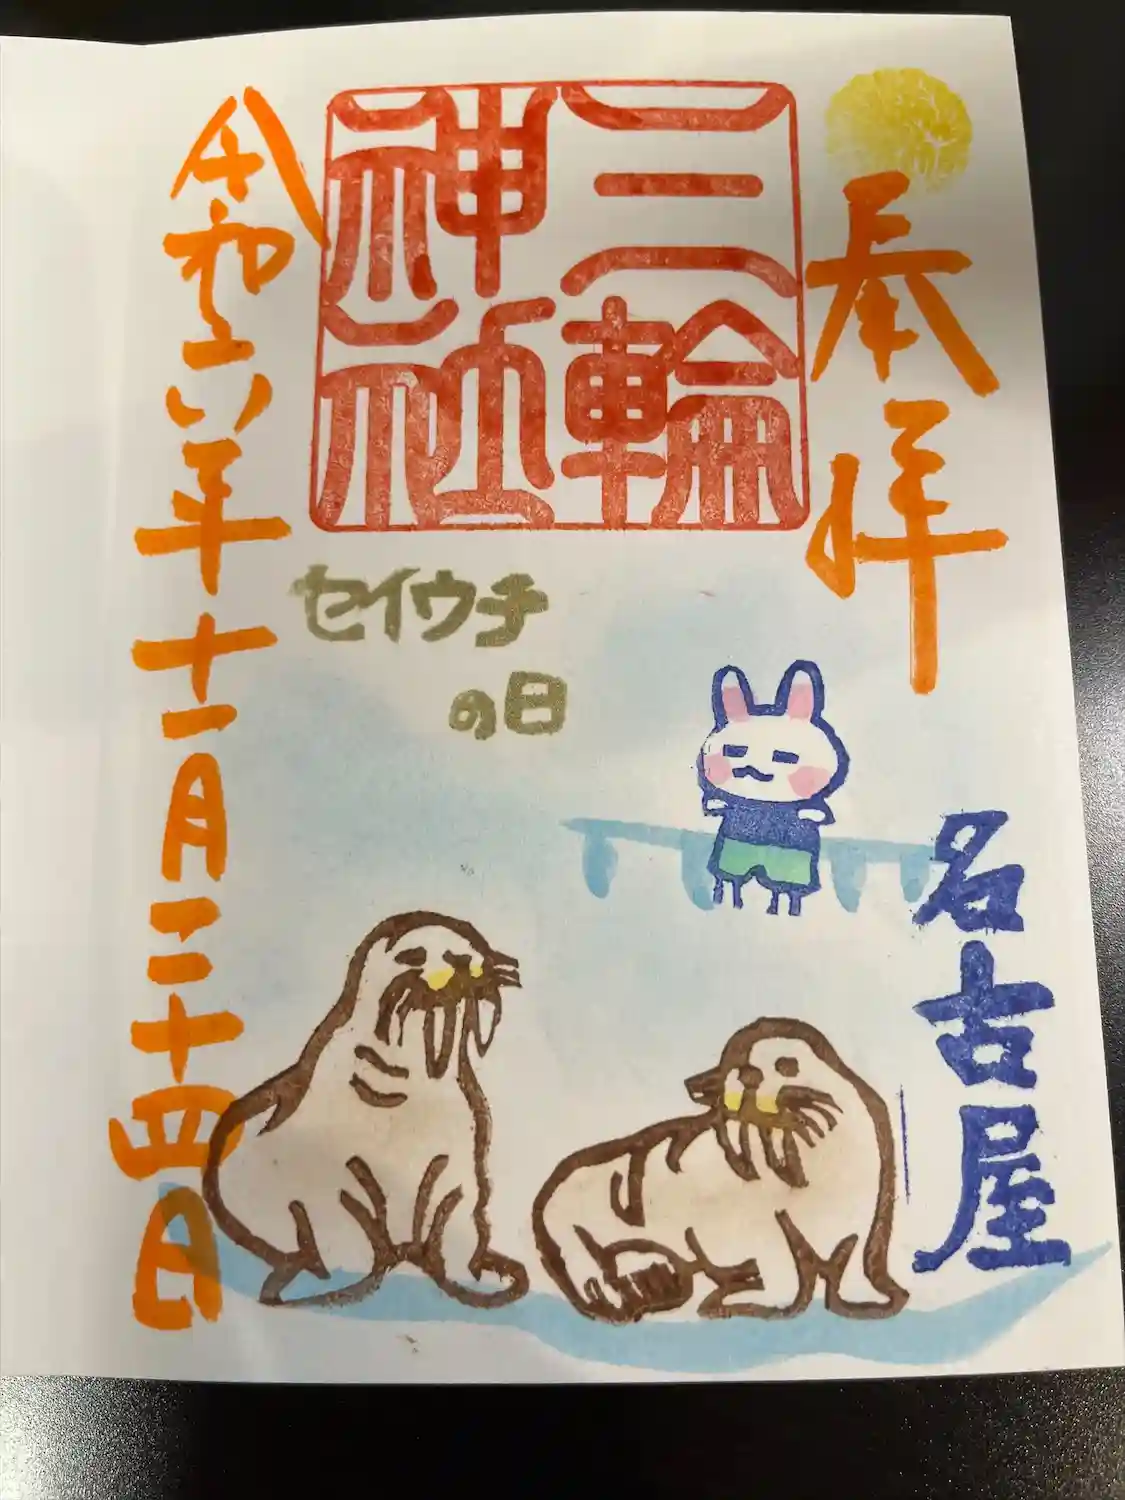 奉拝
三輪
神社
名古屋
セイウチ
の日
令和六年十一月二十四日